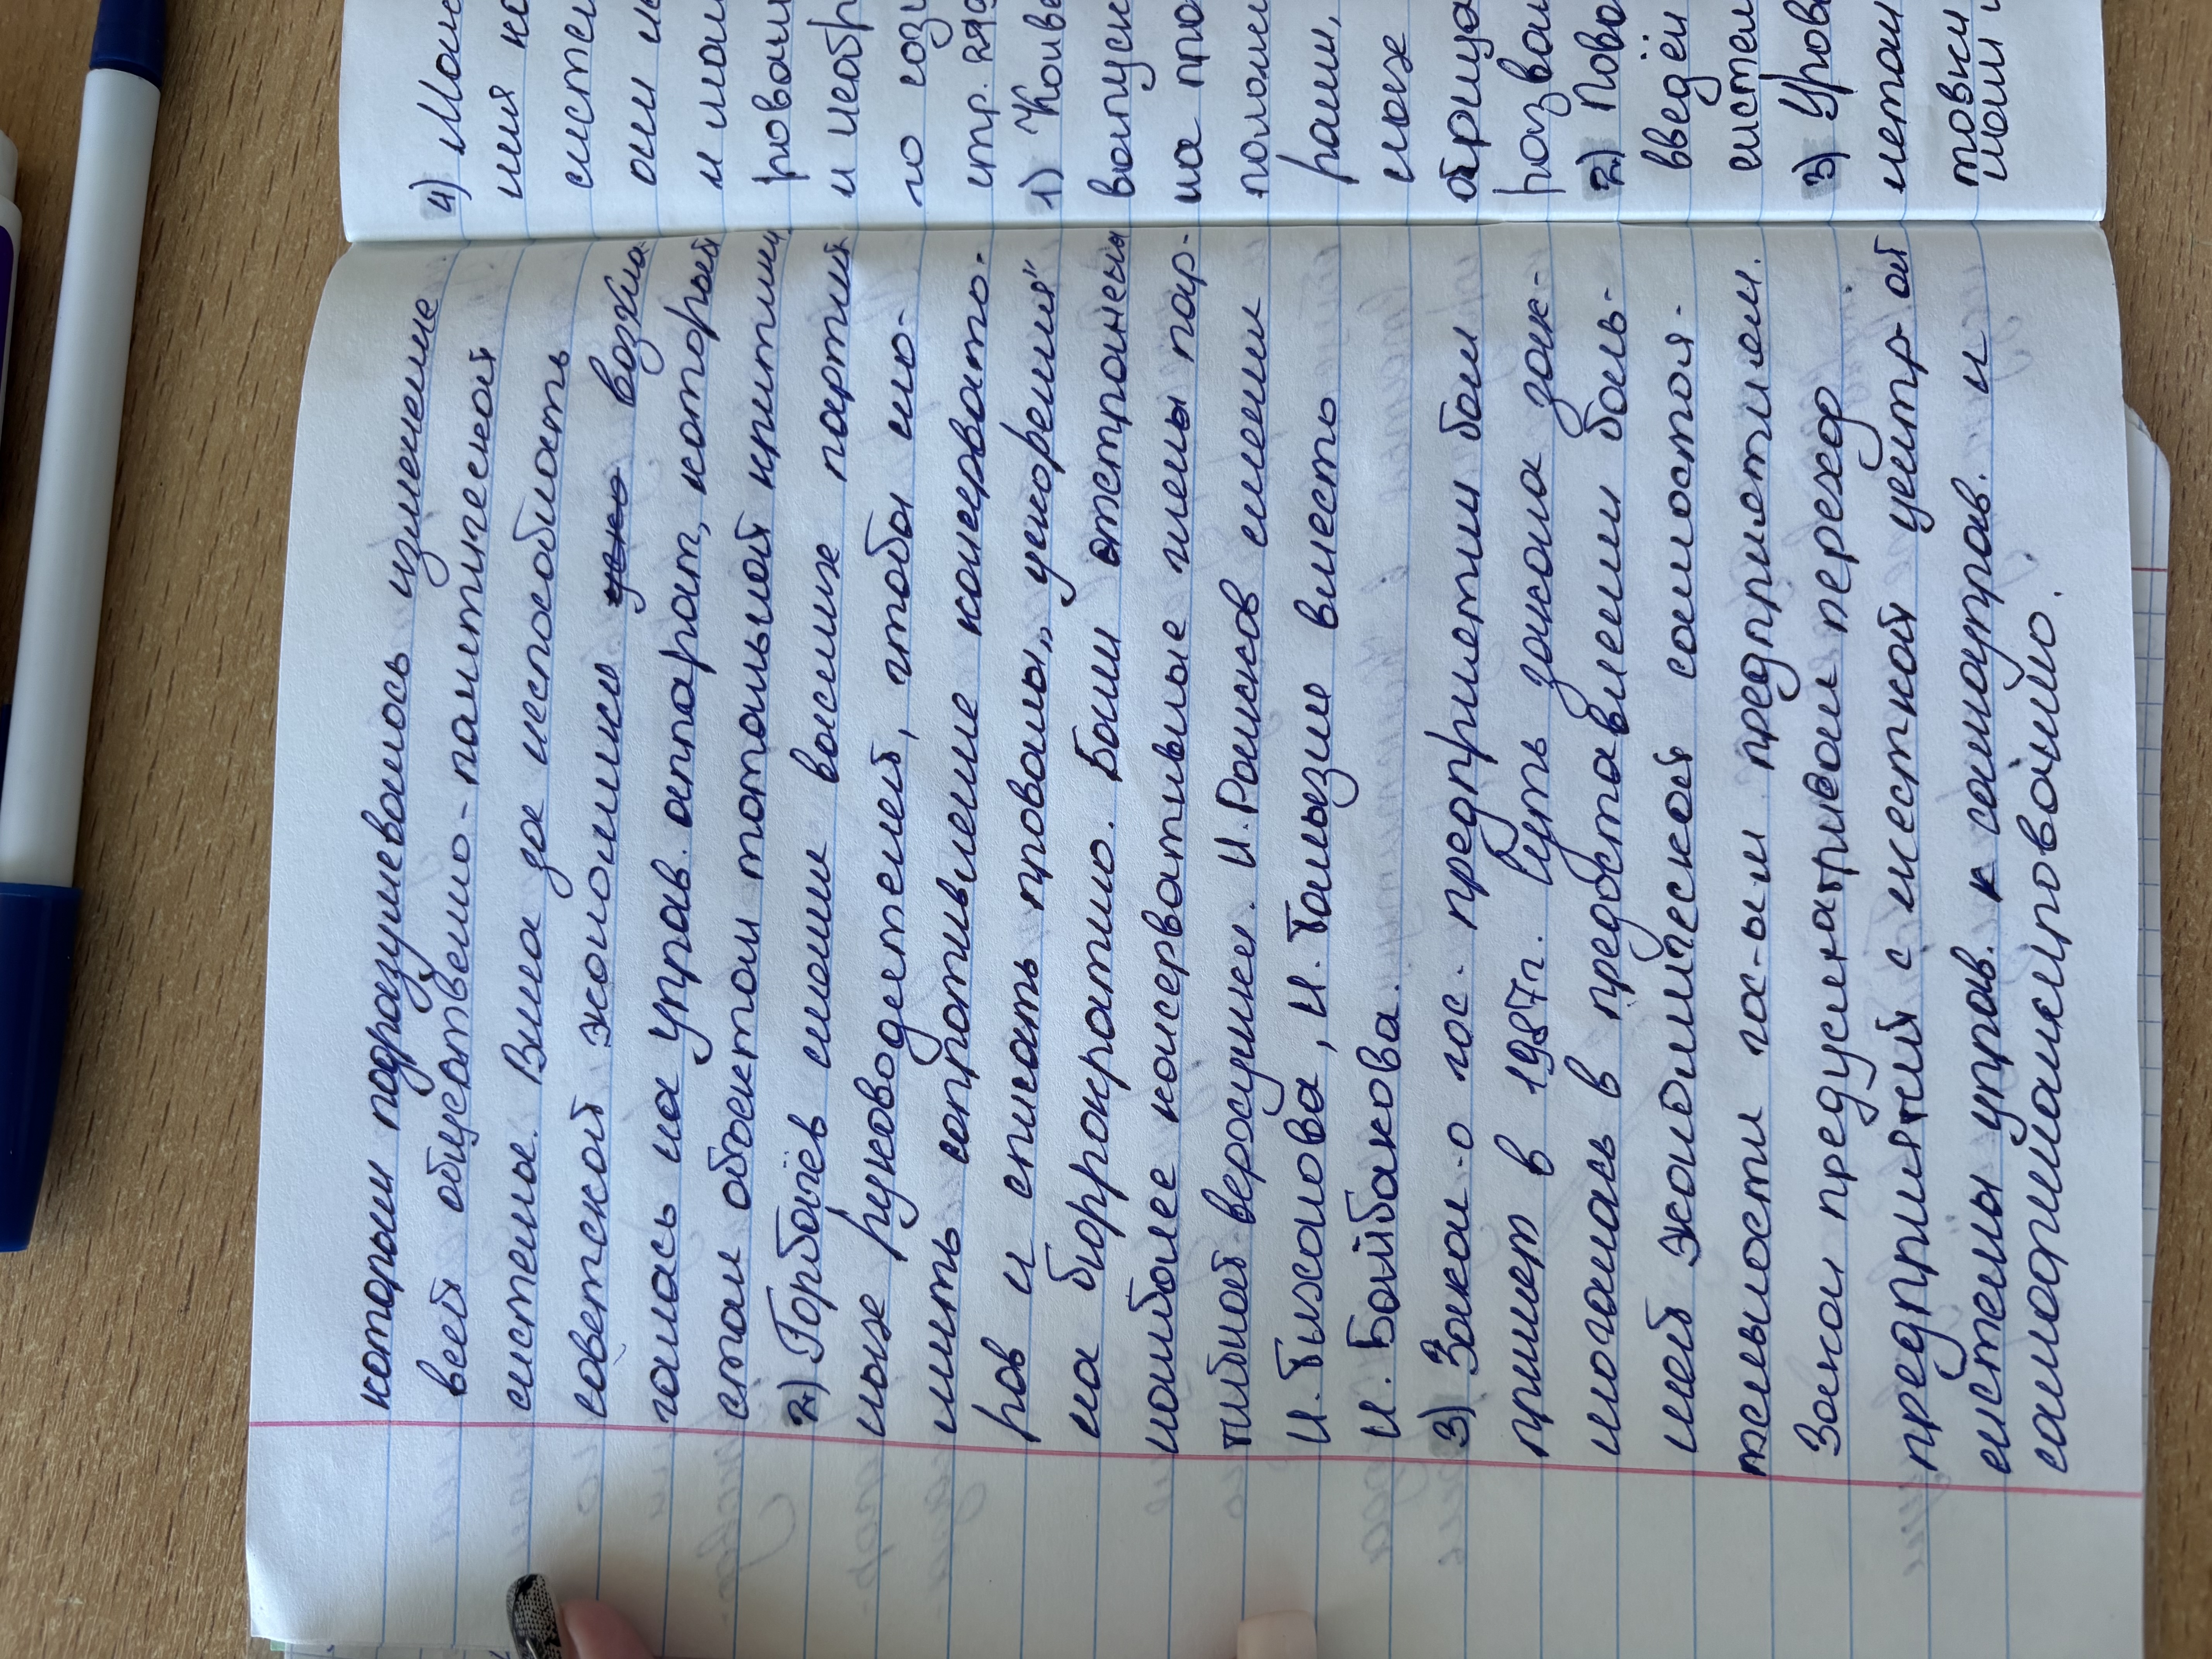 которым подразумевалось изменение
всей общественно-политической
системы. Вина за неспособность
советской экономики возла
галась на управ. аппарат, который
стал объектом тотальной критики
2) Горбачёв сменил высших партий
ных руководителей, чтобы сло-
мить сопротивление консервато-
ров и списать провалы „ускорения"
на бюрократию. Были отстранены
наиболее консервативные члены пар-
тийной верхушки. Н.Рыжков сменил
Н.Тихонова, Н.Талызин вместо
Н.Байбакова.
3) Закон о гос. предприятии был
принят в 1987г. Суть закона зак-
лючалась в предоставлении боль-
шей экономической самостоя-
тельности гос-ым предприятием.
Закон предусматривал переход
предприятий с жесткой центр ой
системы управ. к самоуправ. и
самофинансированию.
4) 
ния
они
и
и необр
го
стр.
1)
выпуск
на
ных
2)
введён
систем
3) Уров
товки